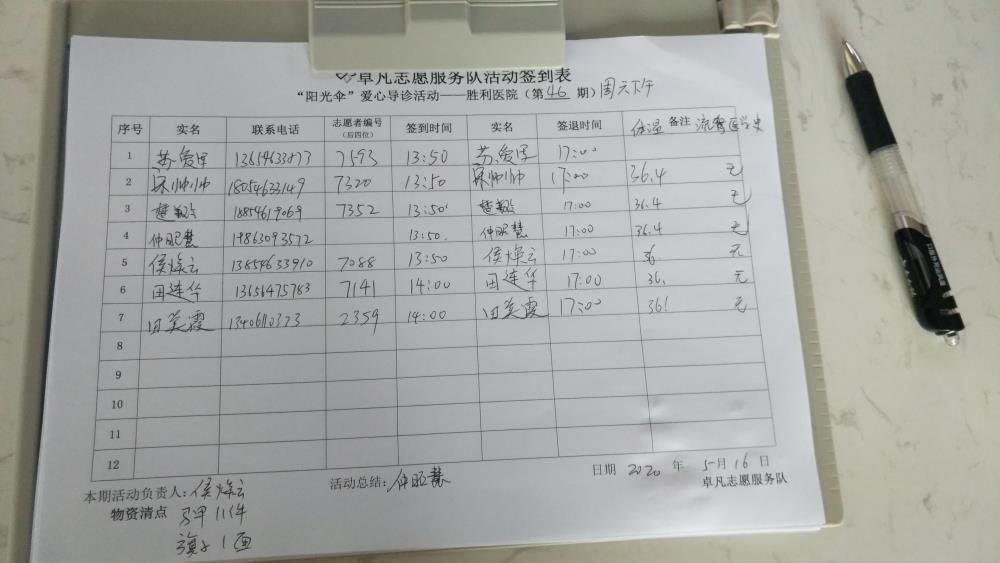 卓凡志愿服务队活动签到表
“阳光伞”爱心导诊活动——胜利医院（第 46 期）周六下午
序号 实名 联系电话 志愿者编号（后四位） 签到时间 实名 签退时间 体温 备注 流行医学史
1 苏爱军 7593 13:50 苏爱军 17:00
2 宋帅帅 18054633149 7320 13:50 宋帅帅 17:00 36.4 无
3 18854619069 7352 13:50 17:00 36.4 无
4 仲昭慧 19863093572 13:50. 仲昭慧 17:00 36.4 无
5 侯焕云 13854633910 7088 13:50 侯焕云 17:00 36. 无
6 田连华 13656475783 7141 14:00 田连华 17:00 36. 无
7 田美霞 2359 14:00 田美霞 17:00 36! 无
8
9
10
11
12
日期 2020 年 5月 16 日
本期活动负责人：侯焕云 活动总结：仲昭慧 卓凡志愿服务队
物资清点 马甲 11件
旗子 1面